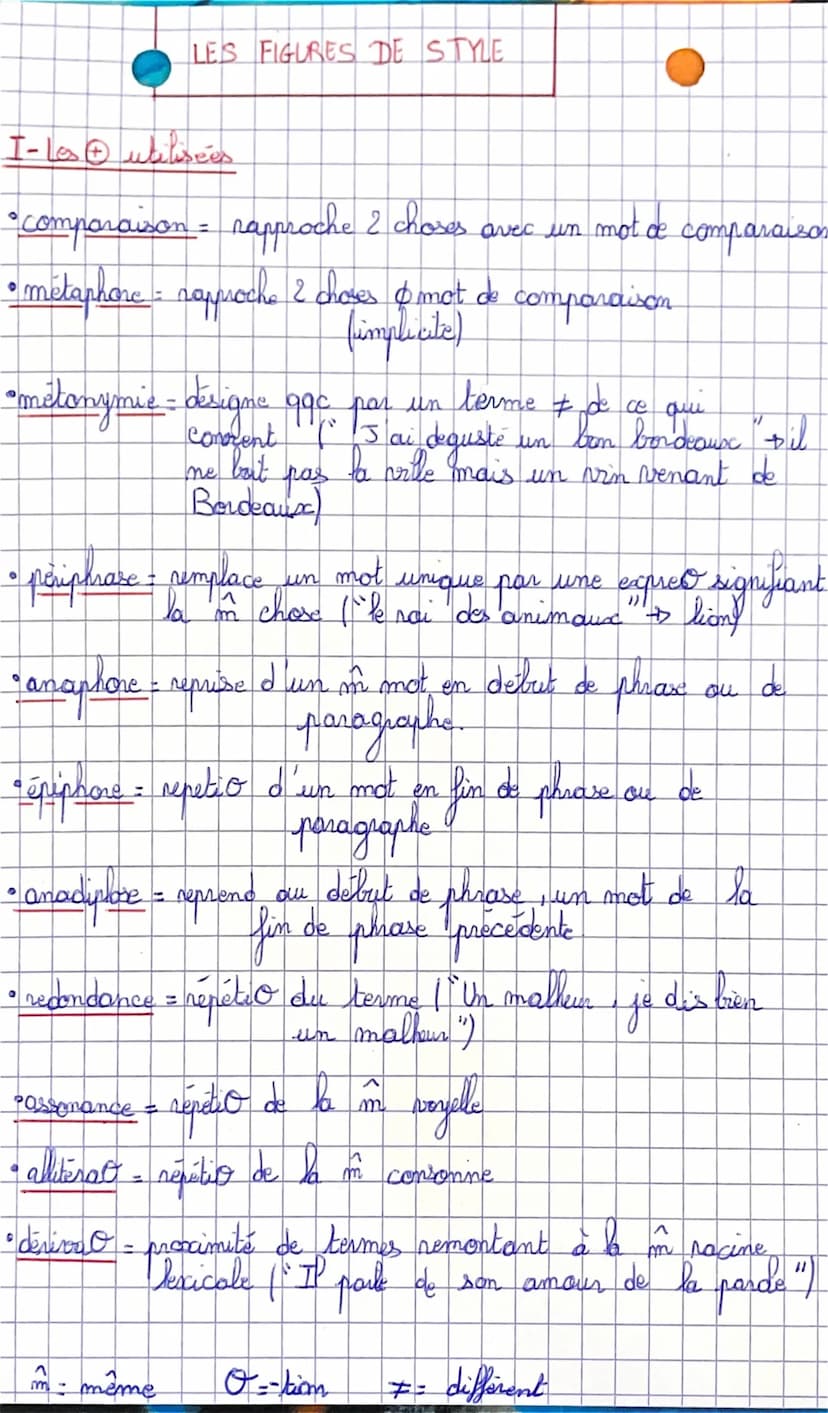 LES FIGURES DE STYLE
I- Les ⊕ utilisées
• comparaison = rapproche 2 choses avec un mot de comparaison
• métaphore = rapproche 2 choses ϕ mot de comparaison
(implicite)
• métonymie = désigne qqc par un terme ≠ de ce qui
convient (" J'ai degusté un bon bordeaux " → il
ne boit pas la ville mais un vin venant de
Bordeaux)
• périphrase = remplace un mot unique par une expresσ signifiant
la m̂ chose ("le roi des animaux" → lion)
• anaphore = reprise d'un m̂ mot en début de phrase ou de
paragraphe.
• épiphore = repetiσ d'un mot en fin de phrase ou de
paragraphe
• anadiplose = reprend au début de phrase, un mot de la
fin de phrase précédente
• redondance = répétiσ du terme ("Un malheur, je dis bien
un malheur")
• assonance = répétiσ de la m̂ voyelle
• allitéraσ = répétiσ de la m̂ consonne
• dérivaσ = proximité de termes remontant à la m̂ racine
lexicale ("Il parle de son amour de la parole")
m̂ = même σ = -tion ≠ = différent